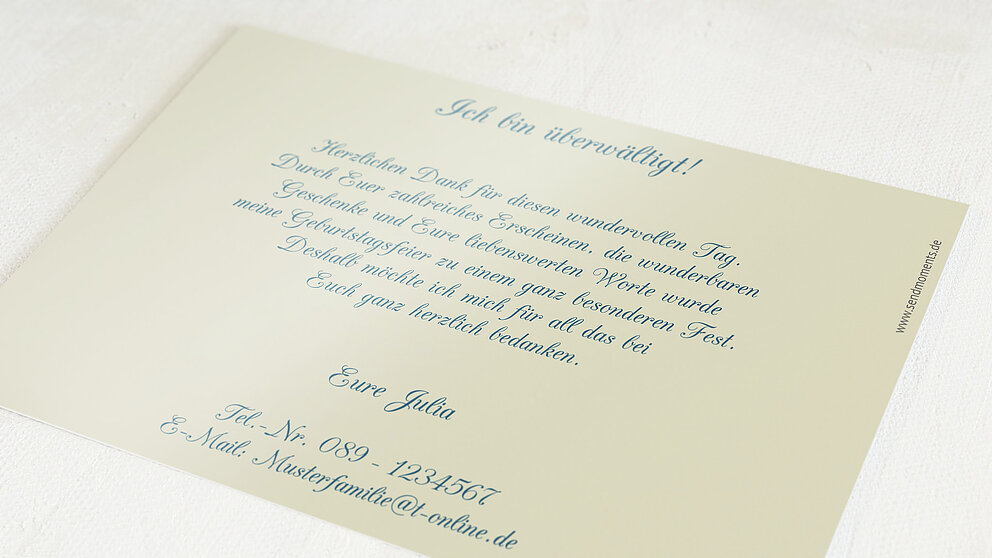 Ich bin überwältigt!
Herzlichen Dank für diesen wundervollen Tag.
Durch Euer zahlreiches Erscheinen, die wunderbaren
Geschenke und Eure liebenswerten Worte wurde
meine Geburtstagsfeier zu einem ganz besonderen Fest.
Deshalb möchte ich mich für all das bei
Euch ganz herzlich bedanken.
Eure Julia
Tel.-Nr. 089 - 1234567
E-Mail: Musterfamilie@t-online.de
www.sendmoments.de